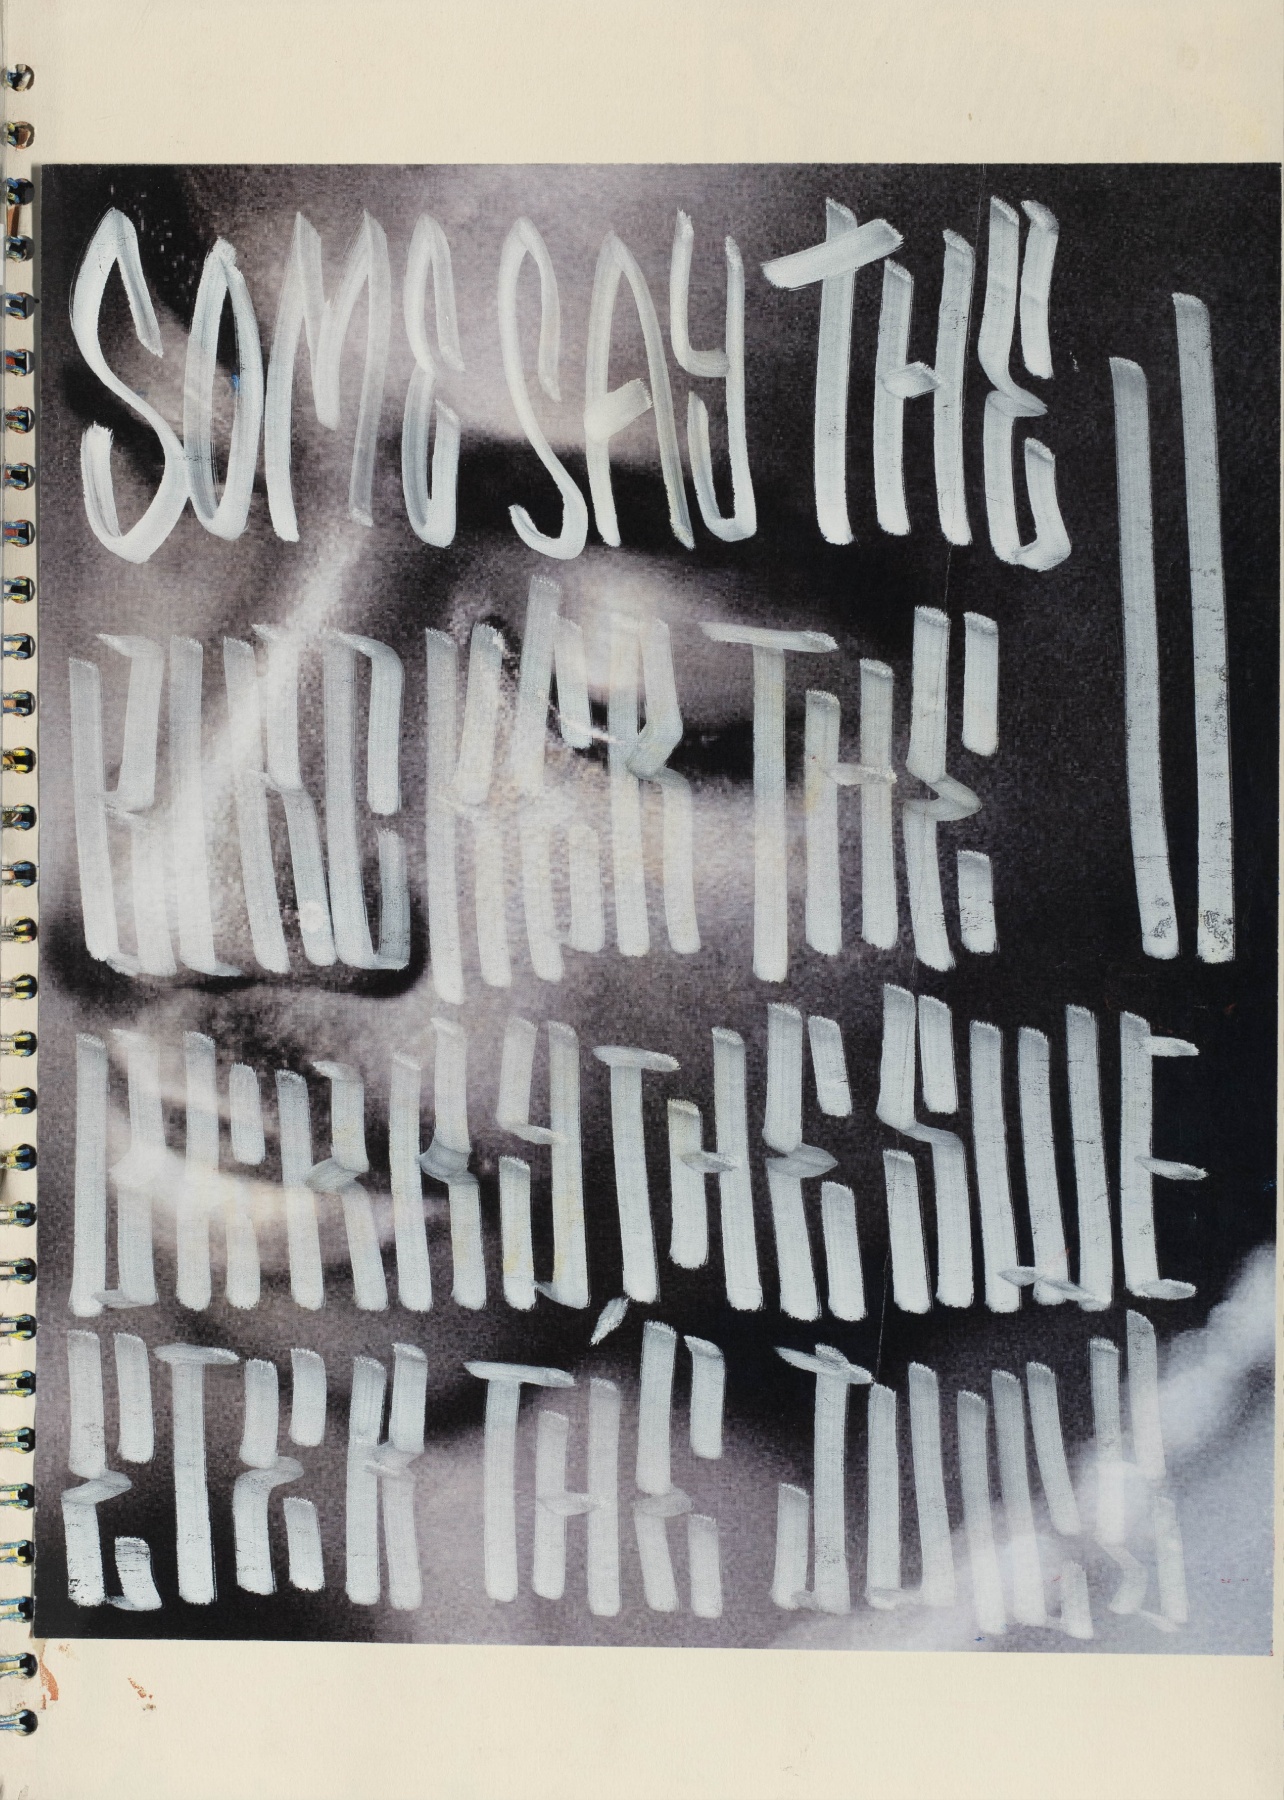 SOME SAY THE
BLACKER THE
BERRY, THE SWE
ETER THE JUICE